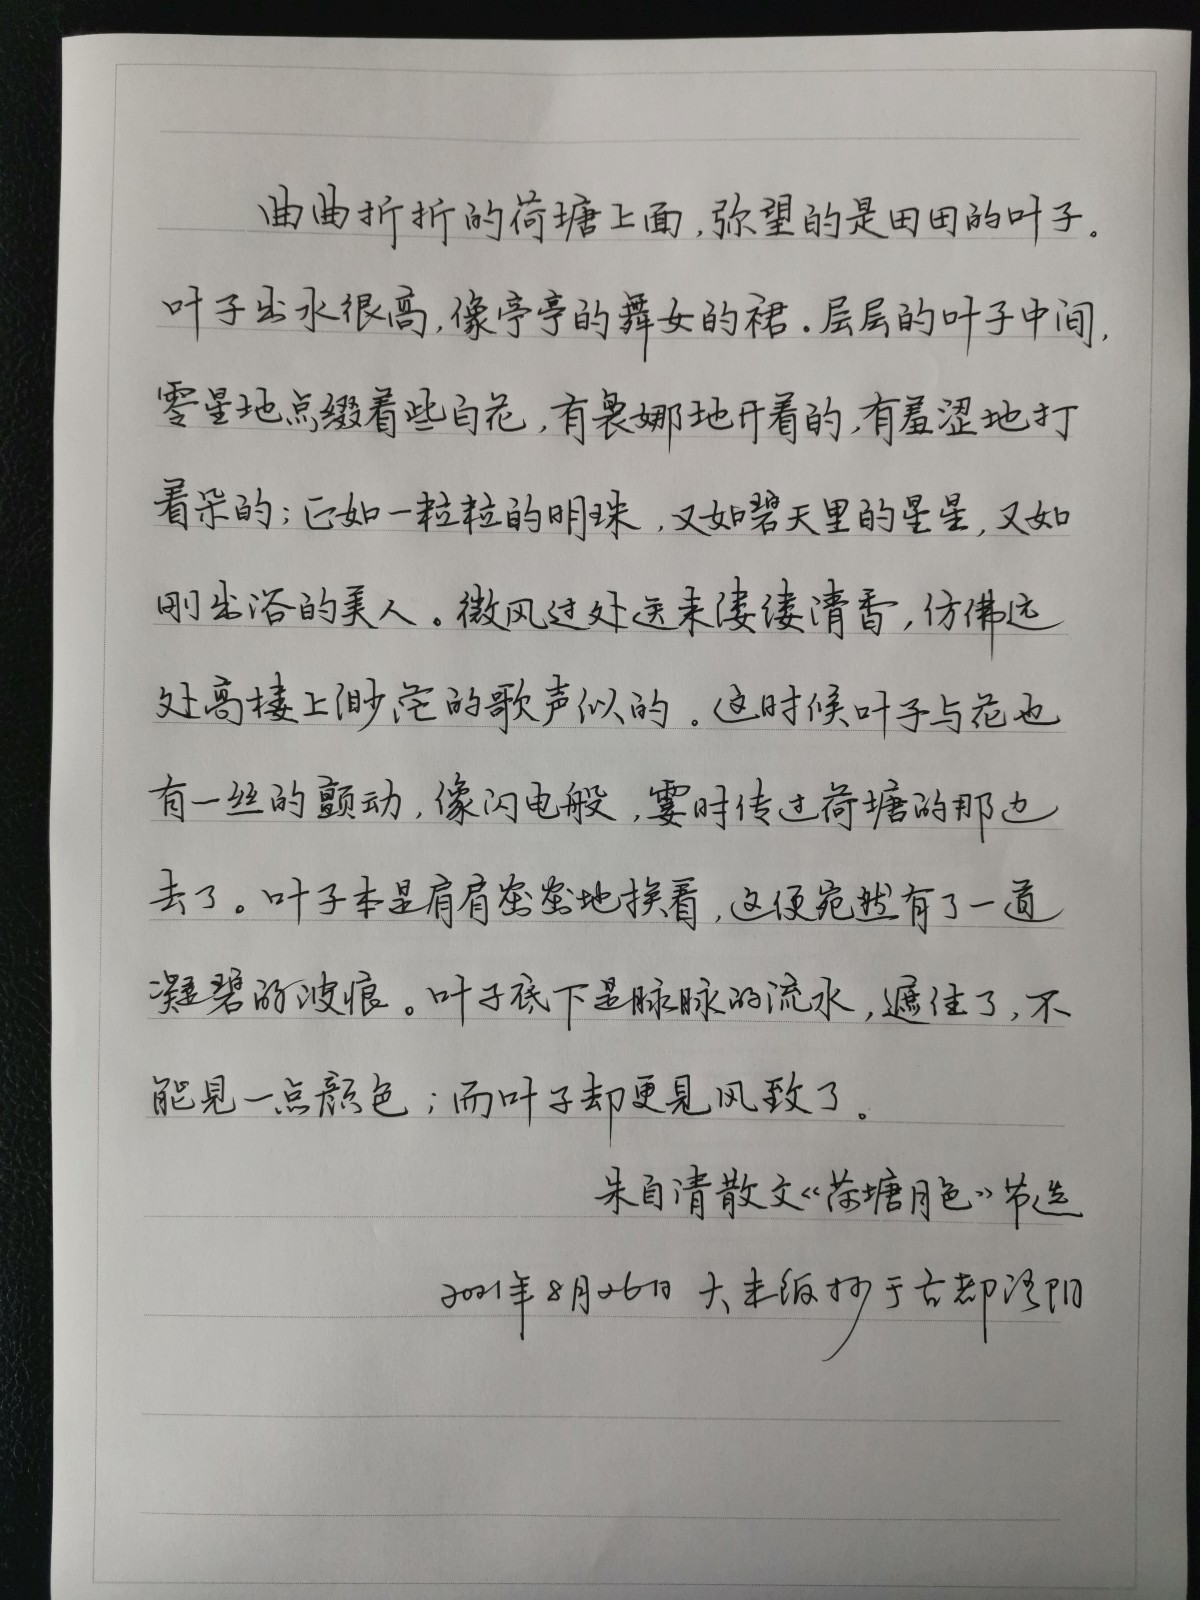 曲曲折折的荷塘上面,弥望的是田田的叶子。
叶子出水很高,像亭亭的舞女的裙.层层的叶子中间,
零星地点缀着些白花,有袅娜地开着的,有羞涩地打
着朵的;正如一粒粒的明珠,又如碧天里的星星,又如
刚出浴的美人。微风过处送来缕缕清香,仿佛远
处高楼上渺茫的歌声似的。这时候叶子与花也
有一丝的颤动,像闪电般,霎时传过荷塘的那边
去了。叶子本是肩肩密密地挨着,这便宛然有了一道
凝碧的波痕。叶子底下是脉脉的流水,遮住了,不
能见一点颜色;而叶子却更见风致了。
朱自清散文《荷塘月色》节选
2021年8月26日 大米饭抄于古都洛阳